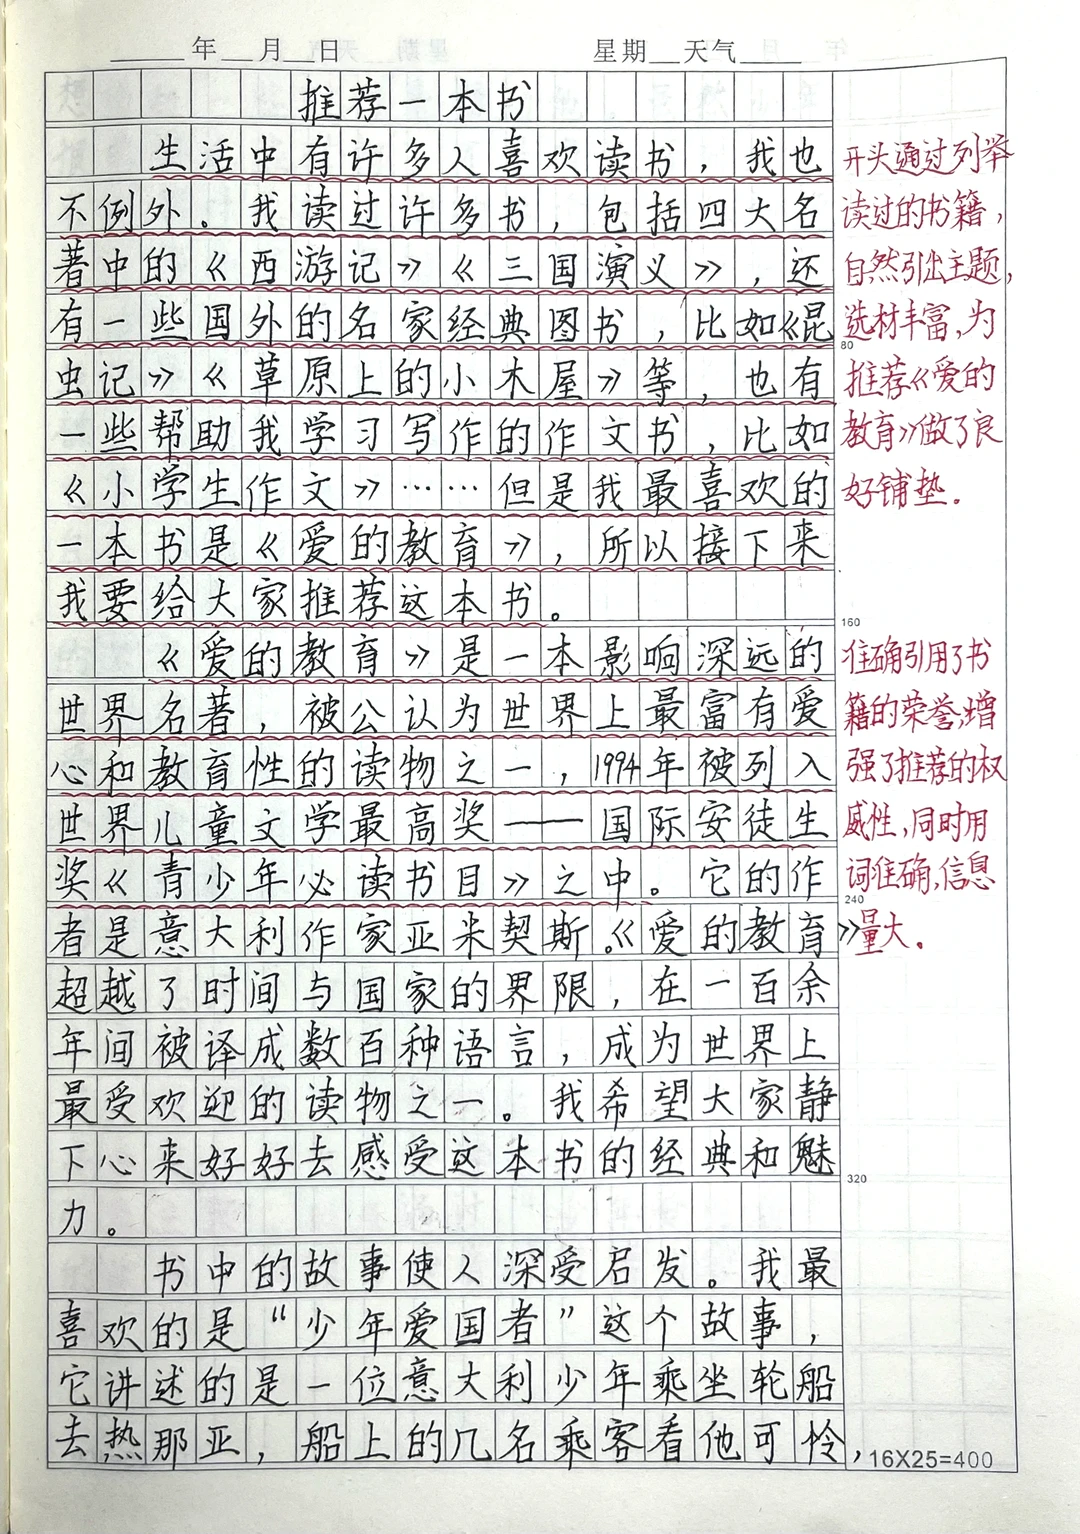 年 月 日 星期 天气
推荐一本书
生活中有许多人喜欢读书，我也
不例外。我读过许多书，包括四大名
著中的《西游记》《三国演义》，还
有一些国外的名家经典图书，比如《昆
虫记》《草原上的小木屋》等，也有
一些帮助我学习写作的作文书，比如
《小学生作文》……但是我最喜欢的
一本书是《爱的教育》，所以接下来
我要给大家推荐这本书。
《爱的教育》是一本影响深远的
世界名著，被公认为世界上最富有爱
心和教育性的读物之一，1994年被列入
世界儿童文学最高奖——国际安徒生
奖《青少年必读书目》之中。它的作
者是意大利作家亚米契斯。《爱的教育》
超越了时间与国家的界限，在一百余
年间被译成数百种语言，成为世界上
最受欢迎的读物之一。我希望大家静
下心来好好去感受这本书的经典和魅
力。
书中的故事使人深受启发。我最
喜欢的是“少年爱国者”这个故事，
它讲述的是一位意大利少年乘坐轮船
去热那亚，船上的几名乘客看他可怜，
开头通过列举
读过的书籍，
自然引出主题，
选材丰富，为
推荐《爱的
教育》做了良
好铺垫。
准确引用了书
籍的荣誉，增
强了推荐的权
威性，同时用
词准确，信息
量大。
80
160
240
320
16X25=400